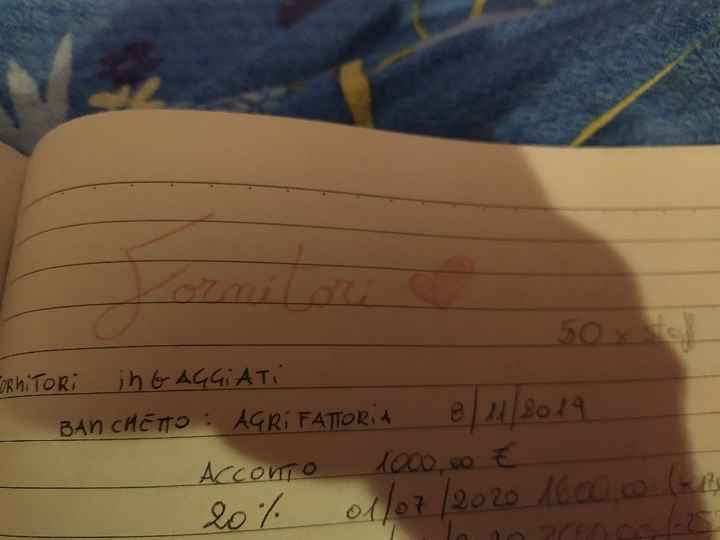 Fornitori
50 x
FORNITORI INGAGGIATI
BANCHETTO: AGRIFATTORIA 8/11/2019
ACCONTO 1000,00 €
20% 01/07/2020 1600,00